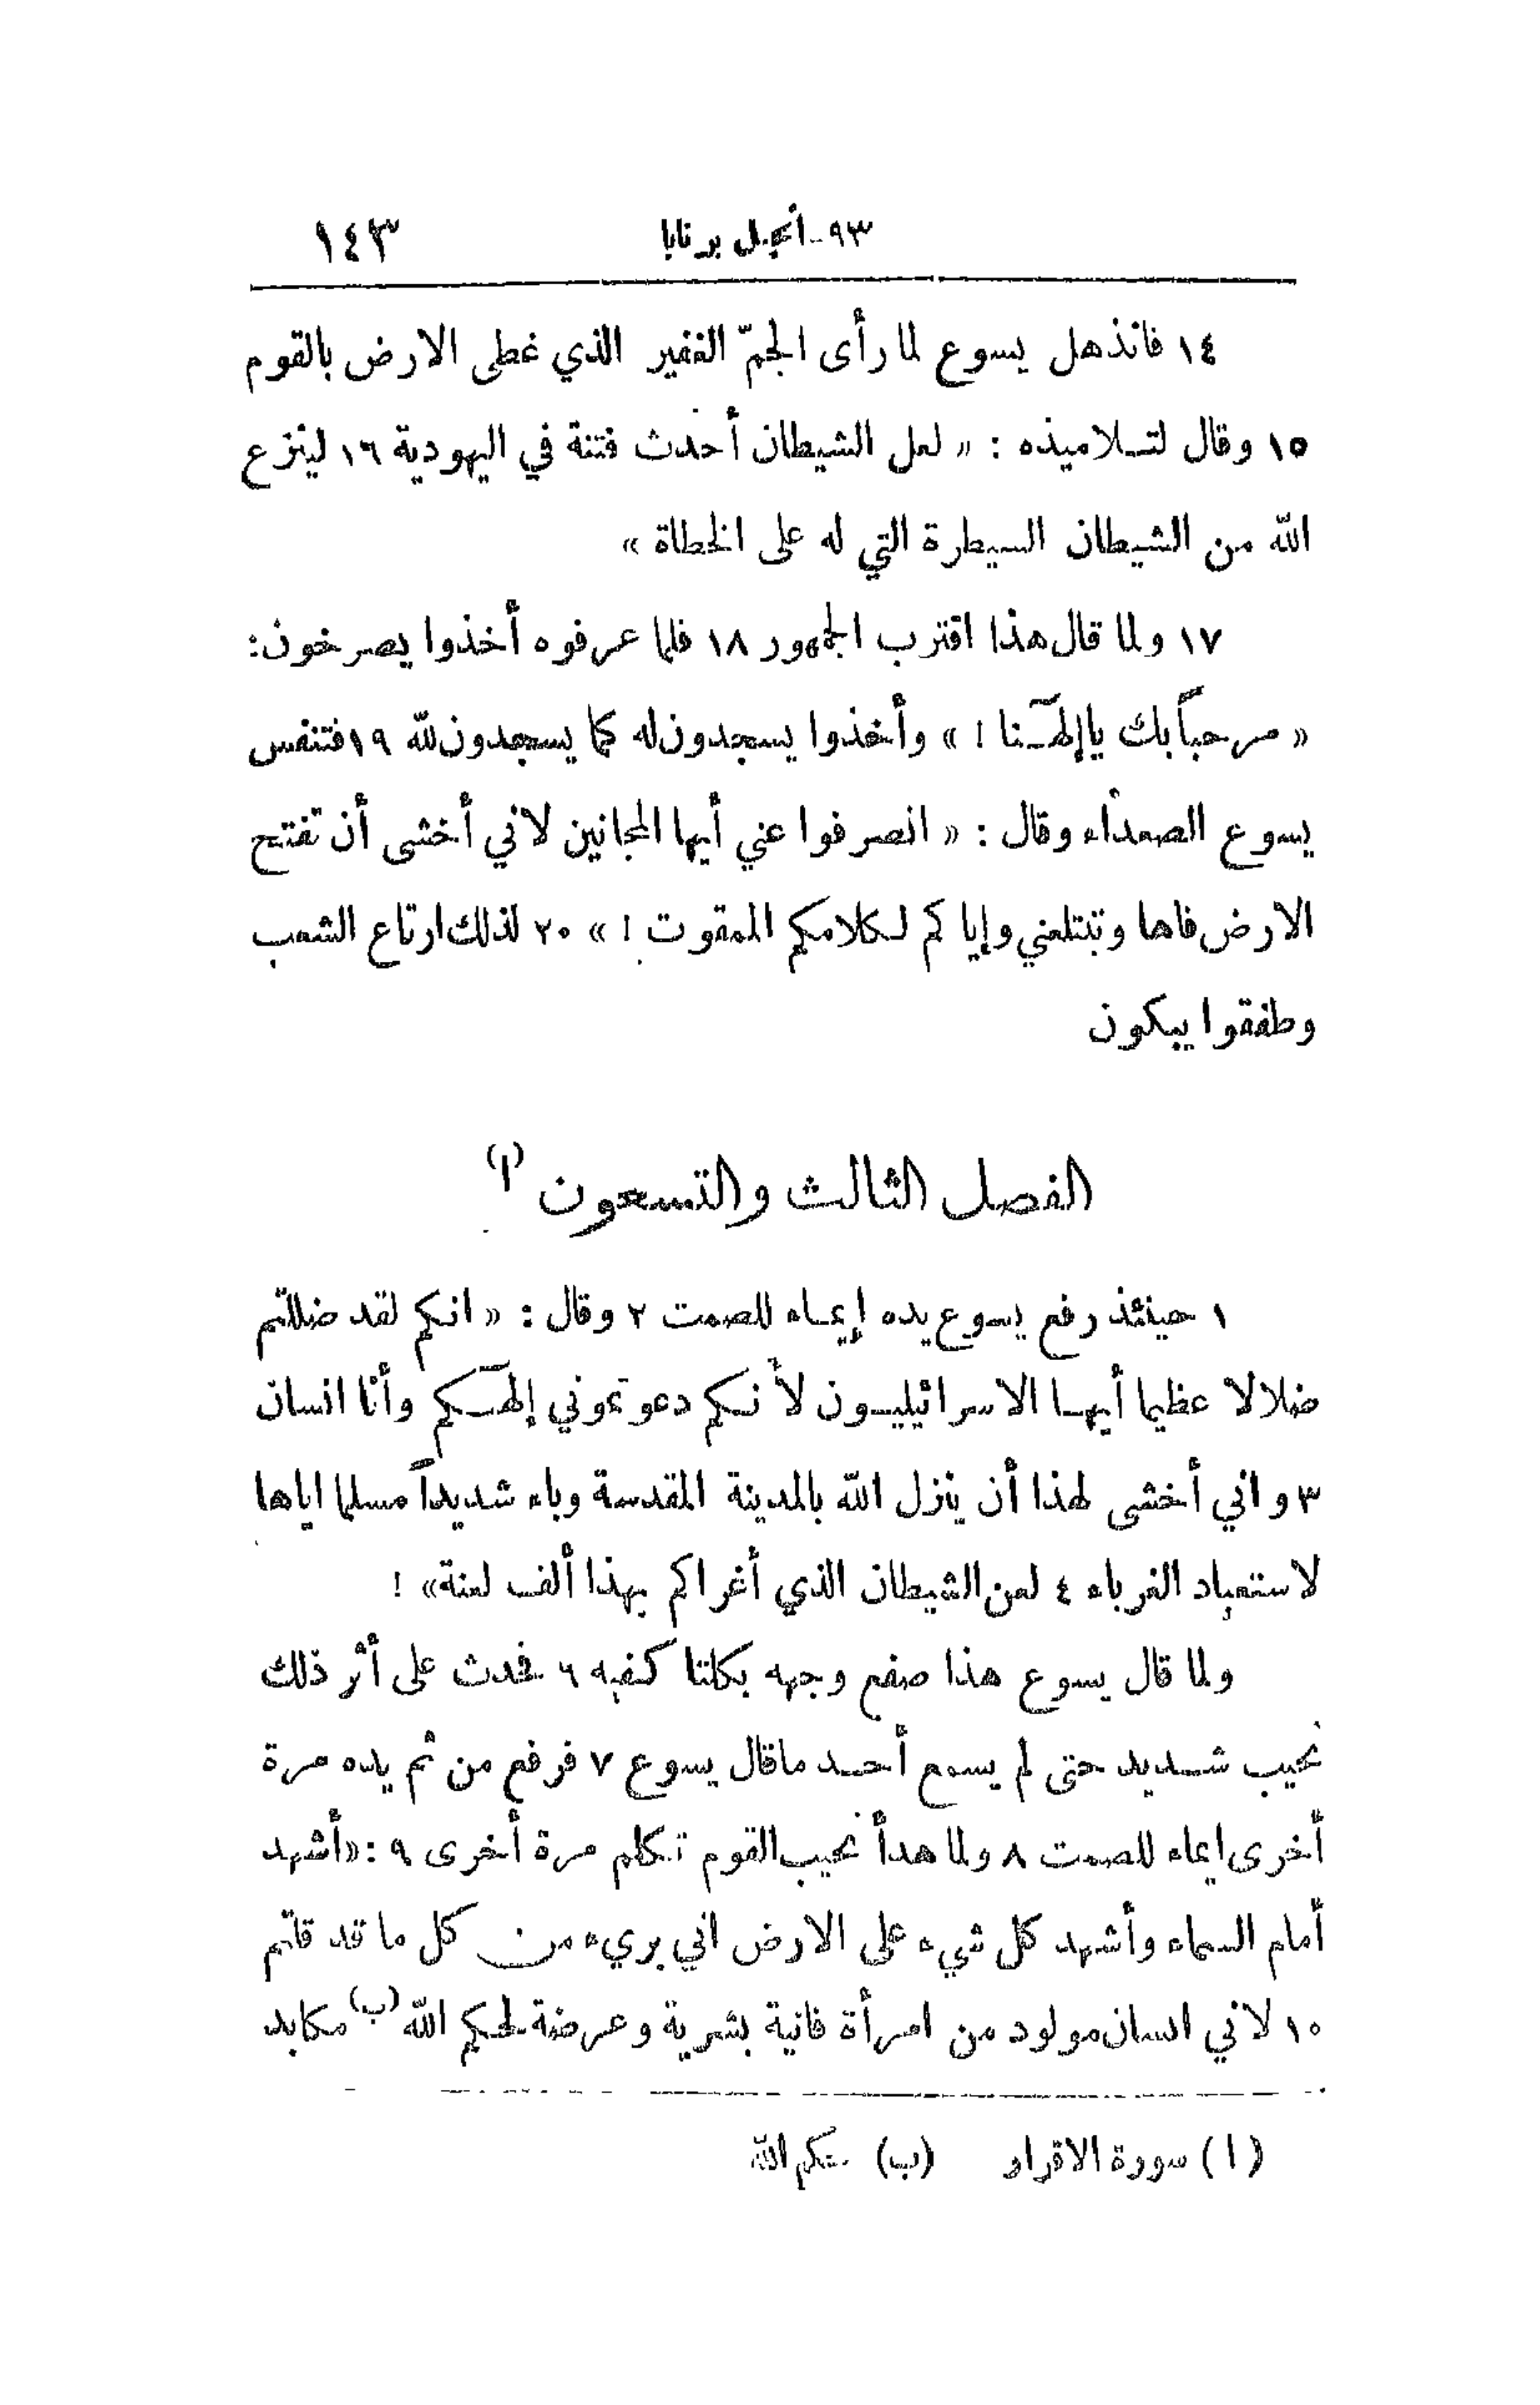 ٩٣ - أنجيل برنابا ١٤٣
١٤ فانذهل يسوع لما رأى الجمّ الغفير الذي غطى الارض بالقوم
١٥ وقال لتلاميذه : « لعل الشيطان أحدث فتنة في اليهودية ١٦ لينزع
الله من الشيطان السيطرة التي له على الخطاة »
١٧ ولما قال هذا اقترب الجمهور ١٨ فلما عرفوه أخذوا يصرخون:
« مرحباً بك ياإلهنا ! » وأخذوا يسجدون له كما يسجدون لله ١٩ فتنفس
يسوع الصعداء وقال : « انصرفوا عني أيها المجانين لاني أخشى أن تفتح
الارض فاها وتبتلعني وإياكم لكلامكم الممقوت ! » ٢٠ لذلك ارتاع الشعب
وطفقوا يبكون
الفصل الثالث والتسعون (ا)
١ حينئذ رفع يسوع يده إيماء للصمت ٢ وقال : « انكم لقد ضللتم
ضلالا عظيما أيها الاسرائيليون لأنكم دعوتموني إلهكم وأنا انسان
٣ واني أخشى لهذا أن ينزل الله بالمدينة المقدسة وباء شديداً مسلما اياها
لاستعباد الغرباء ٤ لعن الشيطان الذي أغراكم بهذا ألف لعنة» !
ولما قال يسوع هذا صفع وجهه بكلتا كفيه ٦ فحدث على أثر ذلك
نحيب شديد حتى لم يسمع أحد ماقال يسوع ٧ فرفع من ثم يده مرة
أخرى ايماء للصمت ٨ ولما هدأ نحيب القوم تكلم مرة أخرى ٩ : «أشهد
أمام السماء وأشهد كل شيء على الارض اني بريء من كل ما قد قلتم
١٠ لاني انسان مولود من امرأة فانية بشرية وعرضة لحكم الله (ب) مكابد
(ا) سورة الاقرار (ب) حكم الله